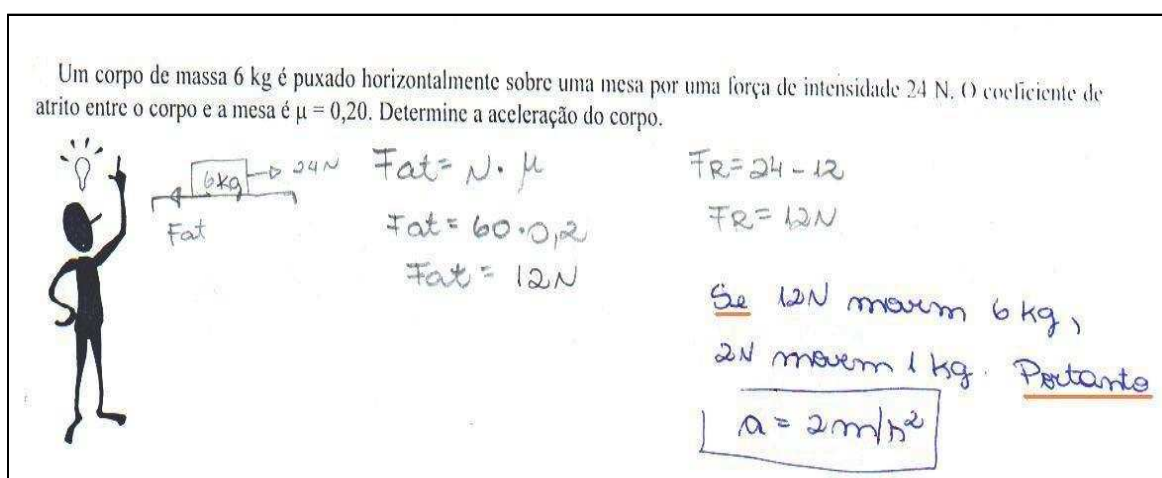 Um corpo de massa 6 kg é puxado horizontalmente sobre uma mesa por uma força de intensidade 24 N. O coeficiente de
atrito entre o corpo e a mesa é μ = 0,20. Determine a aceleração do corpo.
6kg
24N
Fat
Fat = N. μ
Fat = 60.0,2
Fat = 12N
FR=24-12
FR= 12N
Se 12N movem 6 kg,
2N movem 1 kg. Portanto
a = 2m/s²